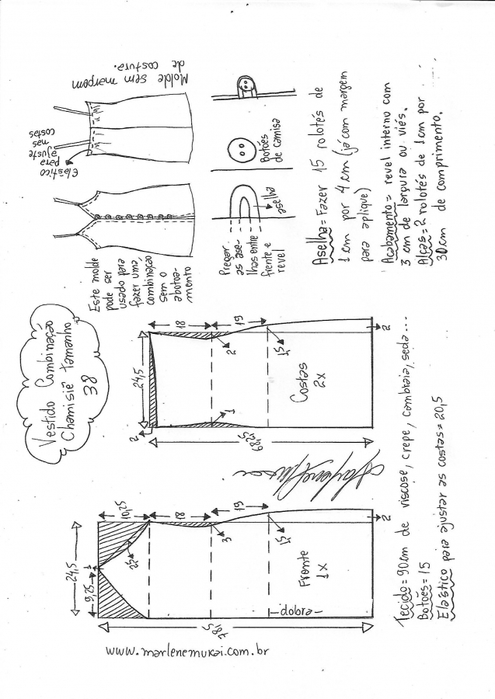 Vestido Combinação
Chamisiê tamanho
38
Este molde
pode ser
usado para
fazer uma
combinação
sem o
abotoa-
mento
Elástico
para
ajuste
nas
costas
Molde sem margem
de costura.
Pregar
as ase-
lhas entre
frente e
revel
aselha
Botões
de camisa
Aselha= Fazer 15 rolotês de
1cm por 4cm (já com margem
para aplique)
Acabamento= revel interno com
3cm de largura ou viés.
Alças= 2 rolotês de 1cm por
30cm de comprimento.
24,5
9,25
1
10,25
18
19
3
1,5
2
78,5
Frente
1x
dobra
24,5
2
18
19
2
1
1,5
2
68,25
Costas
2x
www.marlenemukai.com.br
Tecido= 90cm de viscose, crepe, cambraia, seda...
Botões= 15
Elástico para ajustar as costas= 20,5